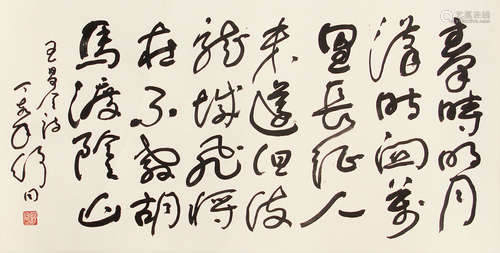 秦時明月
漢時關萬
里長征人
未還但使
龍城飛將
在不教胡
馬渡陰山
王昌令詩
舒同